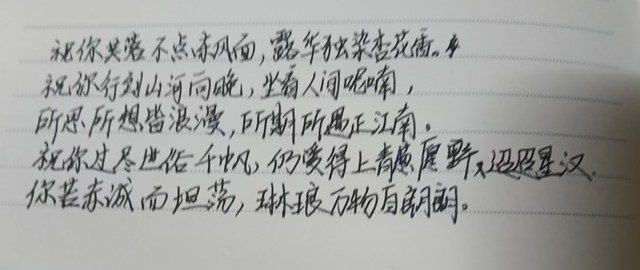 祝你芙蓉不点东风面，露华独染杏花香。
祝你行到山河向晚，坐看人间呢喃，
所思所想皆浪漫，所期所遇正江南。
祝你过尽世俗千帆，仍爱得上青葱原野，迢迢星汉．
你若赤诚而坦荡，琳琅万物自朗朗。